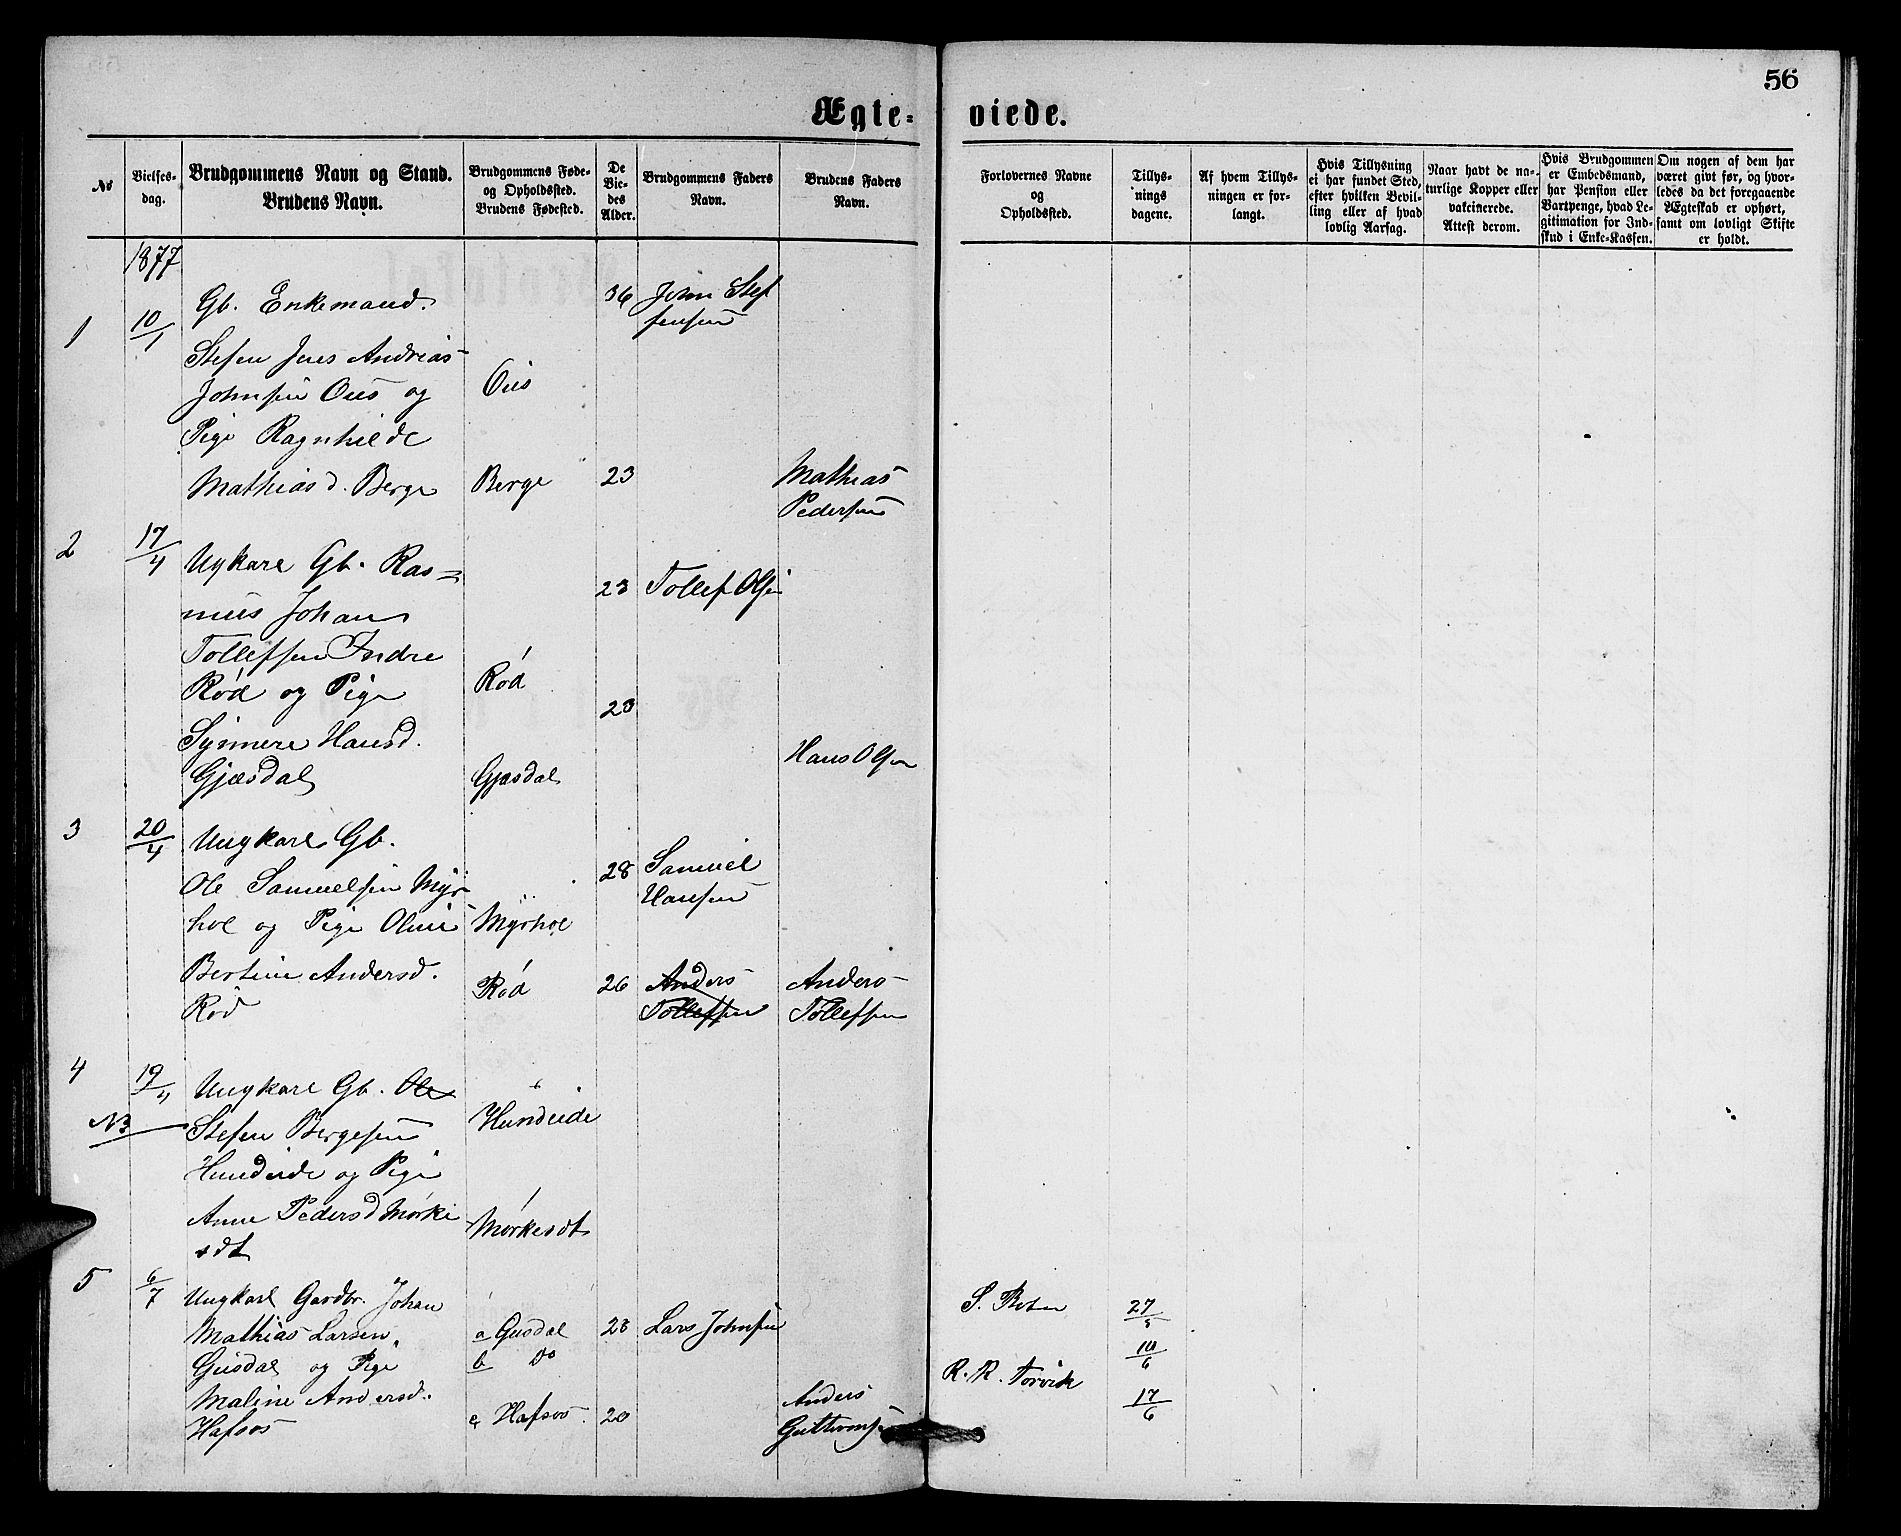 56
Ægte-
viede.
No
Vielses-
dag.
Brudgommens Navn og Stand.
Brudens Navn.
Brudgommens Føde-
og Opholdssted.
Brudens Fødested.
De
Vie-
des
Alder.
Brudgommens Faders
Navn.
Brudens Faders
Navn.
Forlovernes Navne
og
Opholdssted.
Tillys-
nings
dagene.
Af hvem Tillys-
ningen er for-
langt.
Hvis Tillysning
ei har fundet Sted,
efter hvilken Bevil-
ling eller af hvad
lovlig Aarsag.
Naar havt de na-
turlige Kopper eller
vakcinerede.
Attest derom.
Hvis Brudgommen
er Embedsmand,
har Pension eller
Vartpenge, hvad Le-
gitimation for Ind-
skud i Enke-Kassen.
Om nogen af dem har
været givt før, og hvor-
ledes da det foregaaende
Ægteskab er ophørt,
samt om lovligt Skifte
er holdt.
1877
1
10/1
Gb. Enkemand.
Stefen Jens Andreas
Johnsen Ous og
Pige Ragnhilde
Mathiasd. Berge
Ous
Berge
36
23
John Stef
fensen
Mathias
Pedersen
2
17/4
Ugkarl Gb. Ras=
mus Johan
Tollefsen Indre
Rød og Pige
Synnere Hansd.
Gjæsdal
Rød
Gjæsdal
23
23
Tollef Olsen
Hans Olsen
3
20/4
Ungkarl Gb.
Ole Samuelsen Myr-
hol og Pige Oline
Bertine Andersd.
Rød
Myrhol
Rød
28
26
Samuel
Hansen
Anders
Tollefsen
Anders
Tollefsen
4
19/4
NB
Ungkarl Gb. Ole
Stefen Bergesen
Hundeide og Pige
Anne Pedersd Mørke
sdt
Hundeide
Mørkesdt
5
6/7
Ungkarl Gardbr. Johan
Mathias Larsen
Gusdal og Pige
Maline Andersd.
Hafsøs
a Gusdal
b Do
a Hafsos
28
20
Lars Johnsen
Anders
Guttormsen
S. Boten
R. R. Torvik
27/5
10/6
17/6